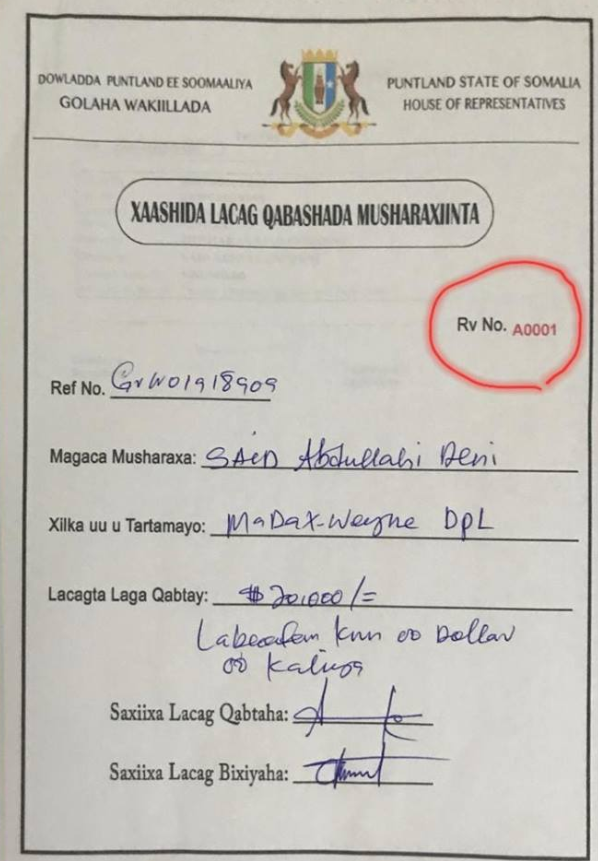 DOWLADDA PUNTLAND EE SOOMAALIYA
GOLAHA WAKIILLADA
PUNTLAND STATE OF SOMALIA
HOUSE OF REPRESENTATIVES
XAASHIDA LACAG QABASHADA MUSHARAXIINTA
Rv No. A0001
Ref No. GrW01918909
Magaca Musharaxa: SAID Abdullahi Deni
Xilka uu u Tartamayo: MaDaX-Weyne DpL
Lacagta Laga Qabtay: $20,000/=
kun oo Dollar
oo Kaliya
Saxiixa Lacag Qabtaha:
Saxiixa Lacag Bixiyaha: